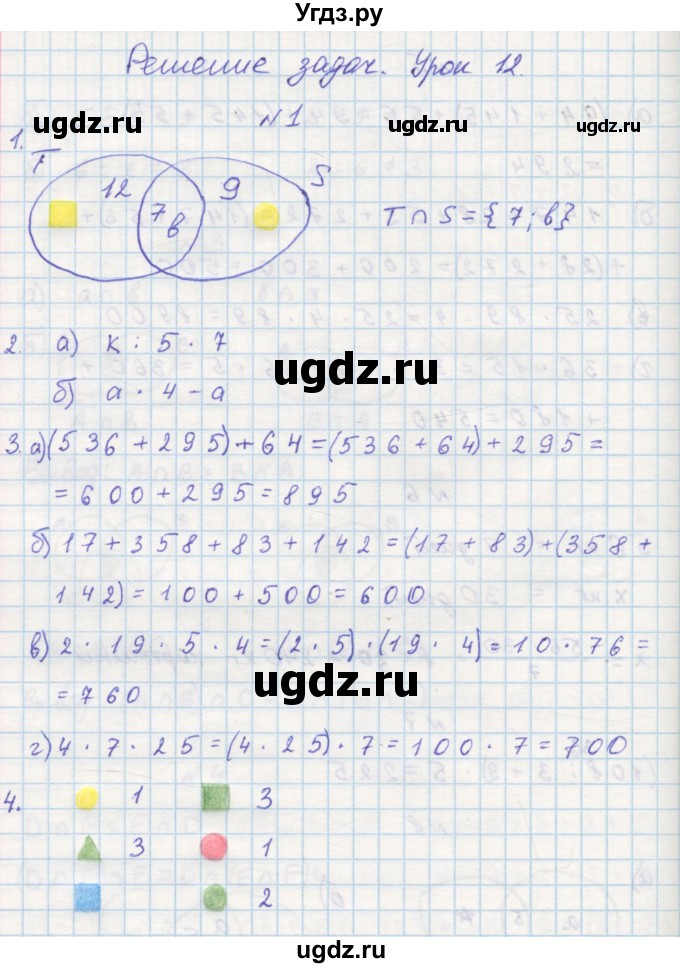 Угдз.ру
Решение задач. Урок 12.
ugdz.ru ugdz.ru ugdz.ru
№1
1.
T 12 7 в 9 S
T ∩ S = {7; в}
2. а) k : 5 · 7
ugdz.ru
б) а · 4 – а
3. а) (536 + 295) + 64 = (536 + 64) + 295 =
= 600 + 295 = 895
б) 17 + 358 + 83 + 142 = (17 + 83) + (358 +
142) = 100 + 500 = 600
в) 2 · 19 · 5 · 4 = (2 · 5) · (19 · 4) = 10 · 76 =
= 760
ugdz.ru
г) 4 · 7 · 25 = (4 · 25) · 7 = 100 · 7 = 700
4. 1 3
3 1
2
ugdz.ru